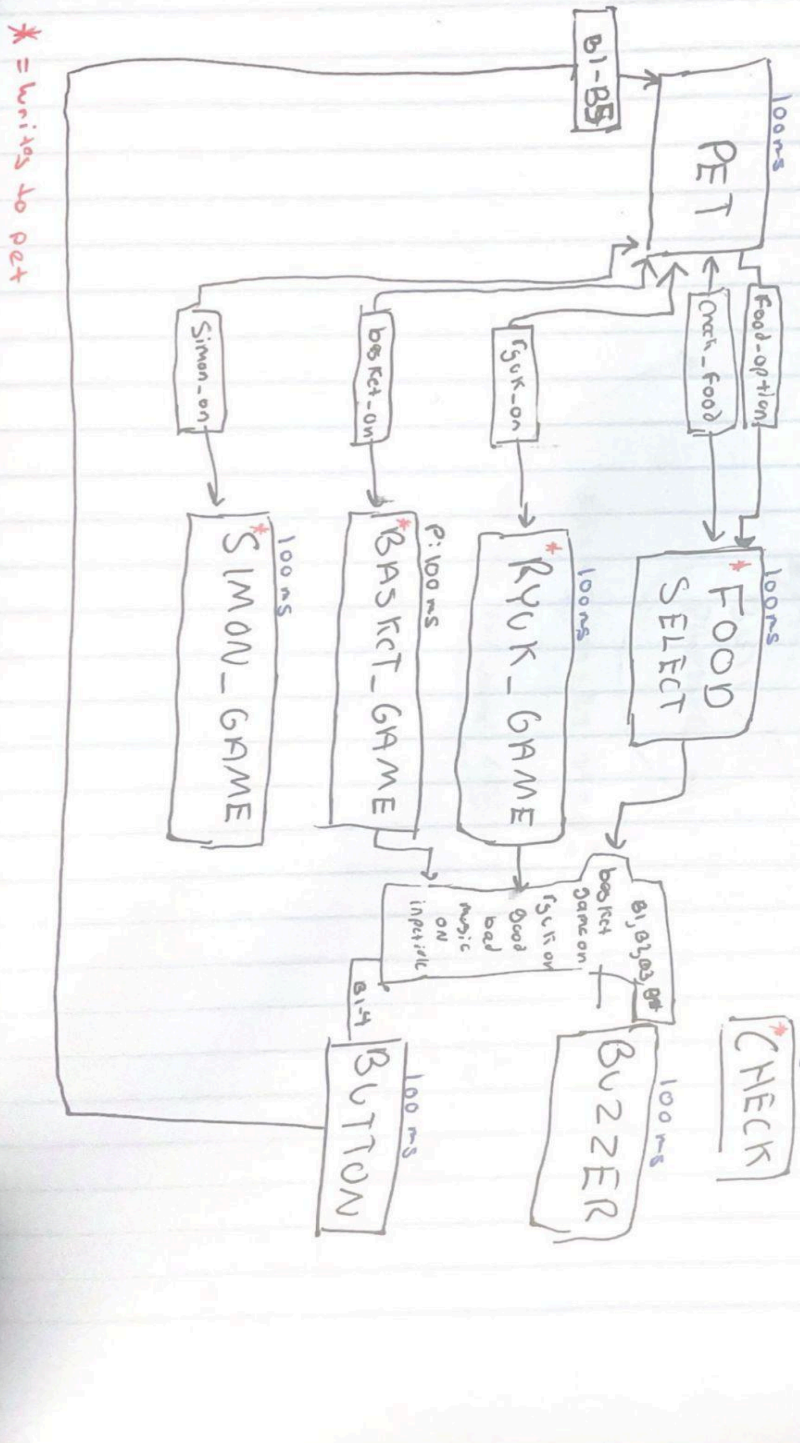 100ms
PET
B1-B5
Food_option
Check_Food
ryuk_on
basket_on
Simon_on
100ms
* FOOD
SELECT
100ms
* RYUK_GAME
P: 100ms
* BASKET_GAME
100ms
* SIMON_GAME
B1, B2, B3, B4
basket
game on
ryuk on
good
bad
music
ON
B1-4
* CHECK
100 ms
BUZZER
100 ms
BUTTON
* = writes to pet